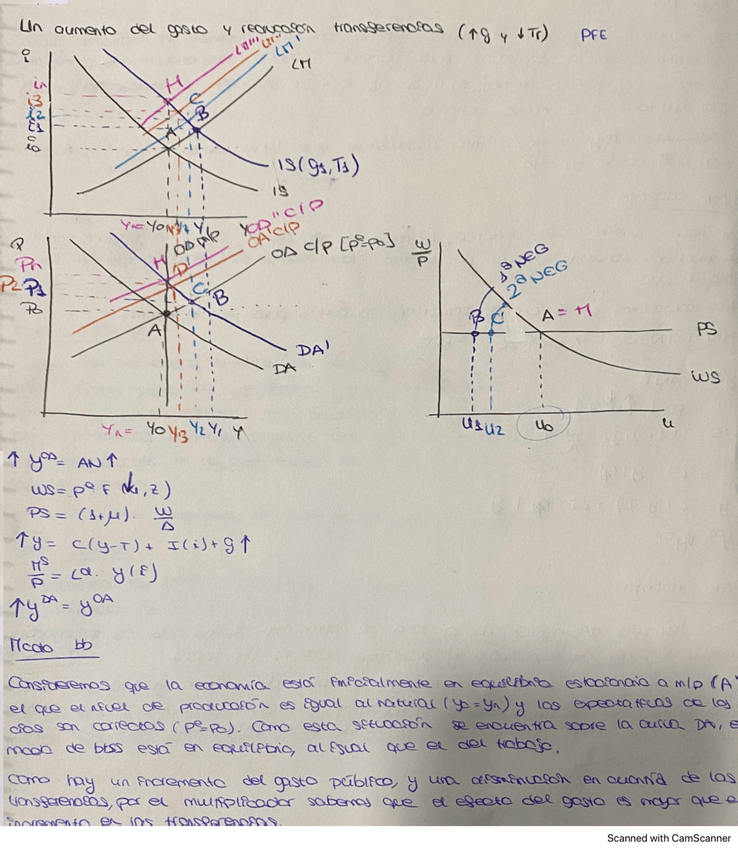 Un aumento del gasto y reducción transferencias (↑g y ↓Tr) PFE
i
LM''' LM'' LM'
LM
i3
i2
i1
i0
H
C
A B
IS(g1,T1)
IS
Yn= Y0 Y3 Y2 Y1 Y
OA'' c/p
OA' c/p
OA c/p [pe=p0]
P
Pn
P2 P1
P0
H
D
C
B
A
DA'
DA
Yn= Y0 Y3 Y2 Y1 Y
W/P
1ª NEG
2ª NEG
B C A = H
PS
WS
u1 u2 u0 u
↑ yOS = AN ↑
WS = pe F (↓u, z)
PS = (1+μ). W/A
↑y = C(y-T) + I(i) + g↑
MS/P = Ld. y(i)
↑yDA = yOA
Mcdo bb
Consideremos que la economía está inicialmente en equilibrio estacionario a m/p (A
el que el nivel de producción es igual al natural (y0=yn) y las expectativas de los
son correctas (pe=p0). Como esta situación se encuentra sobre la curva DA, e
mcdo de bbss está en equilibrio, al igual que el del trabajo.
Como hay un incremento del gasto público, y una disminución en cuantía de las
transferencias, por el multiplicador sabemos que el efecto del gasto es mayor que e
incremento en las transferencias.
Scanned with CamScanner